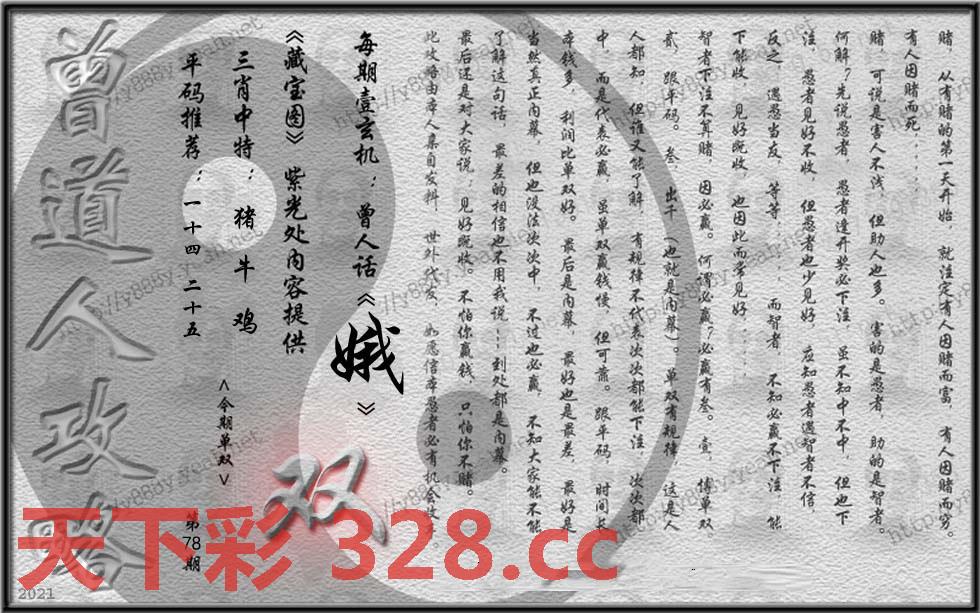 赌，从有赌的第一天开始，就注定有人因赌而富，有人因赌而穷。
有人因赌而死；......
赌，可说是害人不浅，但助人也多。害的是愚者，助的是智者。
何解？先说愚者，愚者逢开奖必下注，虽不知中不中，但也下
注，愚者见好不收，但愚者也少见好，应知愚者遇智者不信，
反之，遇愚当友，等等......而智者，不知必赢不下注，能
下能收，见好既收，也因此而常见好......
智者下注不算赌，因必赢。何谓必赢？必赢有叁。壹，博单双，
贰，跟平码。叁，出千（也就是内幕）。单双有规律，这是人
人都知，但谁又能了解，有规律不代表次次都能下注，次次都
中，而是代表必赢，虽单双赢钱慢，但可靠。跟平码，时间长
本钱多，利润比单双好。最后是内幕，最好也是最差，最好是
当然真正内幕，但也没法次次中，不过也必赢，不知大家能不能
了解这句话，最差的相信也不用我说……到处都是内幕。
最后还是对大家说；见好既收。不怕你赢钱，只怕你不赌。
此攻略由本人亲自发料，世外代发，如愿信本愚者必有机会致
每期壹玄机：曾人话《娥》
《藏宝图》紫光处内容提供
三肖中特：猪 牛 鸡
平码推荐：一十四 二十五
<今期单双>
双
第78期
曾道人攻略
天下彩 328.cc
2021